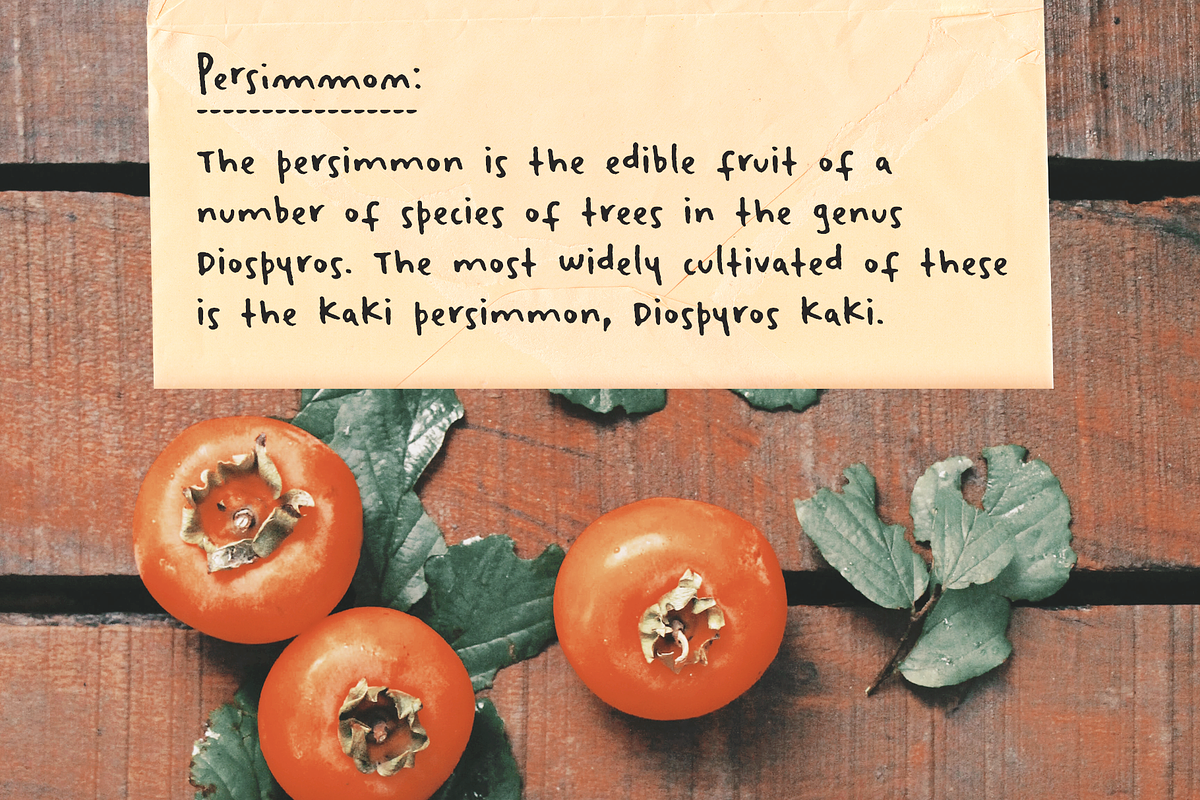 Persimmom:
The persimmon is the edible fruit of a
number of species of trees in the genus
Diospyros. The most widely cultivated of these
is the kaki persimmon, Diospyros kaki.